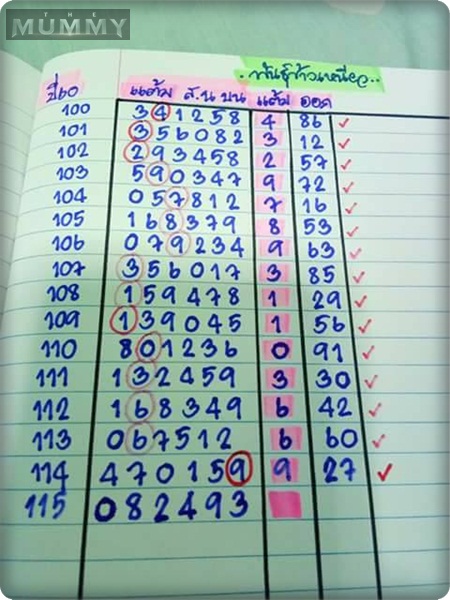 THE
MUMMY
.พันธุ์ข้าวเหนียว..
ปี60 แต้ม ส.น บน แต้ม ออก
100 341258 4 86 ✓
101 356082 3 12 ✓
102 293458 2 57 ✓
103 590347 9 72 ✓
104 057812 7 16 ✓
105 168379 8 53 ✓
106 079234 9 63 ✓
107 356017 3 85 ✓
108 159478 1 29 ✓
109 139045 1 56 ✓
110 801236 0 91 ✓
111 132459 3 30 ✓
112 168349 6 42 ✓
113 067512 6 60 ✓
114 470159 9 27 ✓
115 082493